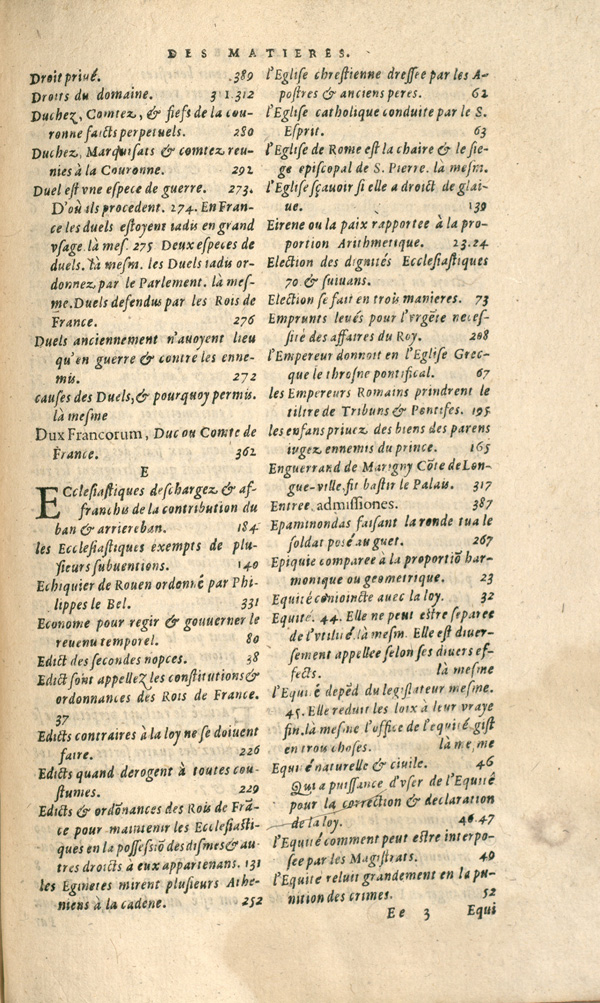 DES MATIERES.
Droit privé. 389
Droits du domaine. 311.312
Duchez, Comtez, & fiefs de la cou-
ronne faicts perpetuels. 280
Duchez, Marquisats & comtez reu-
nies à la Couronne. 292
Duel est vne espece de guerre. 273.
D'où ils procedent. 274. En Fran-
ce les duels estoyent iadis en grand
vsage. là mes. 275 Deux especes de
duels. là mesm. les Duels iadis or-
donnez par le Parlement. là mes-
me. Duels defendus par les Rois de
France. 276
Duels anciennement n'auoyent lieu
qu'en guerre & contre les enne-
mis. 272
causes des Duels, & pourquoy permis.
là mesme
Dux Francorum, Duc ou Comte de
France. 362
E
ECclesiastiques deschargez & af-
franchis de la contribution du
ban & arriereban. 184
les Ecclesiastiques exempts de plu-
sieurs subuentions. 140
Echiquier de Rouen ordonné par Phi-
lippes le Bel. 331
Econome pour regir & gouuerner le
reuenu temporel. 80
Edict des secondes nopces. 38
Edict sont appellez les constitutions &
ordonnances des Rois de France.
37
Edicts contraires à la loy ne se doiuent
faire. 226
Edicts quand derogent à toutes cou-
stumes. 229
Edicts & ordōnances des Rois de Frā-
ce pour maintenir les Ecclesiasti-
ques en la possessiō des dismes & au-
tres droicts à eux appartenans. 131
les Eginetes mirent plusieurs Athe-
niens à la cadene. 252
l'Eglise chrestienne dressee par les A-
postres & anciens peres. 62
l'Eglise catholique conduite par le S.
Esprit. 63
l'Eglise de Rome est la chaire & le sie-
ge episcopal de S. Pierre. là mesm.
l'Eglise sçauoir si elle a droict de glai-
ue. 139
Eirene ou la paix rapportee à la pro-
portion Arithmetique. 23.24
Election des dignités Ecclesiastiques
70 & suiuans.
Election se fait en trois manieres. 73
Emprunts levés pour l'vrgēte neces-
sité des affaires du Roy. 208
l'Empereur donnoit en l'Eglise Grec-
que le throsne pontifical. 67
les Empereurs Romains prindrent le
tiltre de Tribuns & Pontifes. 195
les enfans priuez des biens des parens
iugez ennemis du prince. 165
Enguerrand de Marigny Cōte de Lon-
gue-ville fit bastir le Palais. 317
Entree, admissiones. 387
Epaminondas faisant la ronde tua le
soldat posé au guet. 267
Epiquie comparee à la proportiō har-
monique ou geometrique. 23
Equité conioincte auec la loy. 32
Equité. 44. Elle ne peut estre separee
de l'vtilité. là mesm. Elle est diuer-
sement appellee selon ses diuers ef-
fects. là mesme
l'Equité depēd du legislateur mesme.
45. Elle reduit les loix à leur vraye
fin. là mesme l'office de l'equité gist
en trou choses. là mesme
Equité naturelle & ciuile. 46
Qui a puissance d'vser de l'Equité
pour la correction & declaration
de la loy. 46.47
l'Equité comment peut estre interpo-
see par les Magistrats. 49
l'Equite reluit grandement en la pu-
nition des crimes. 52
Ee 3 Equi